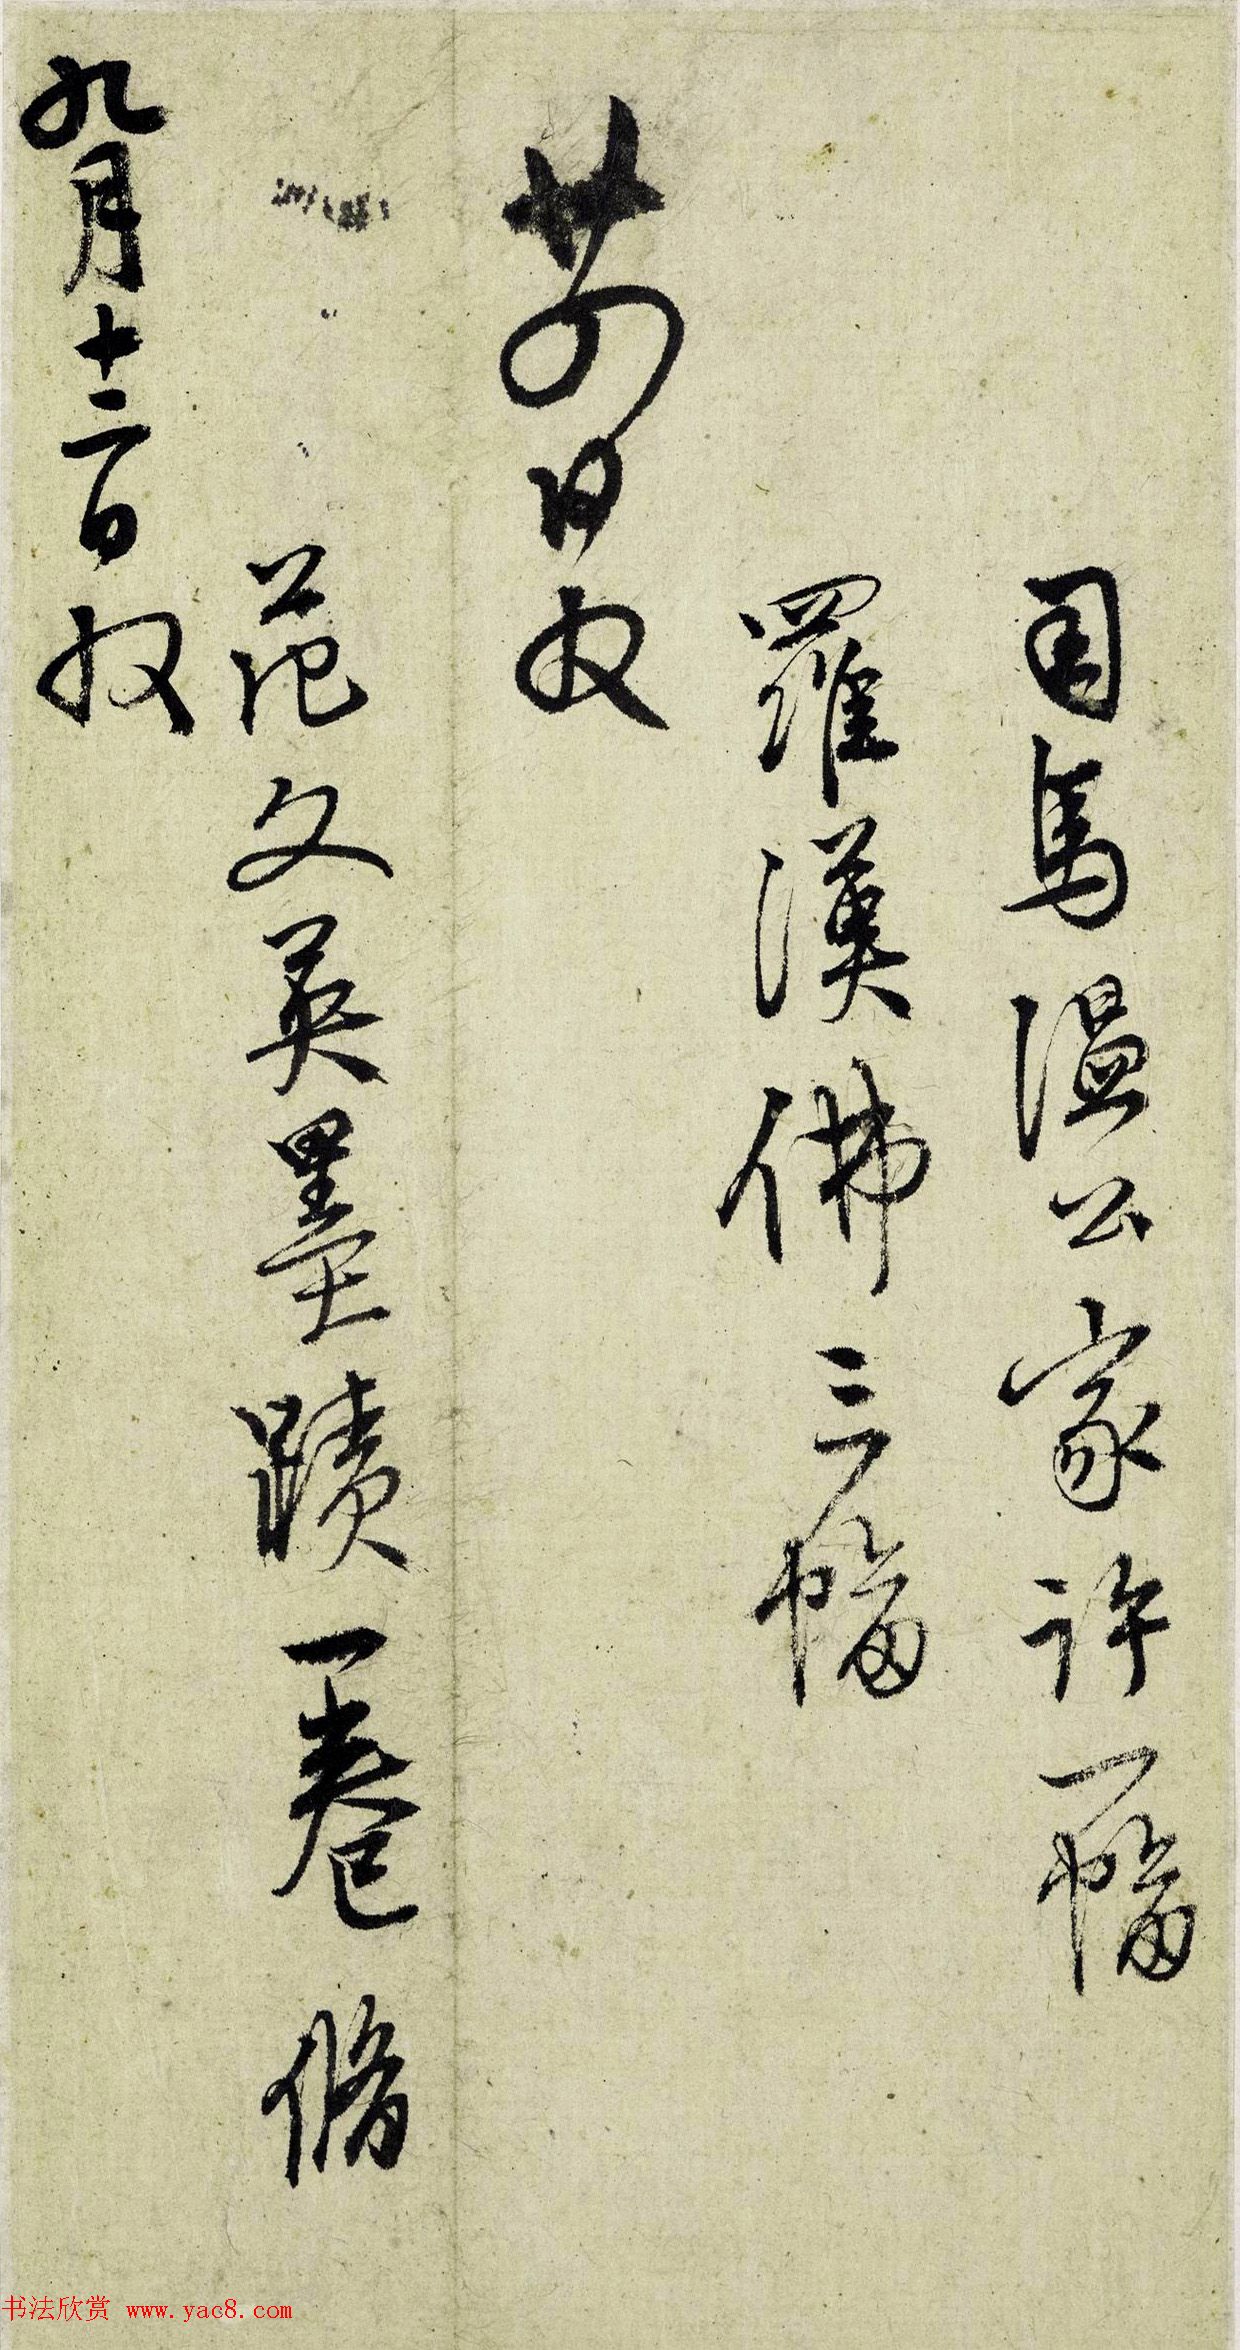 司馬溫公家許一幅
羅漢佛三幅
日收
范文英墨蹟一卷 脩
九月十二日收
书法欣赏 www.yac8.com